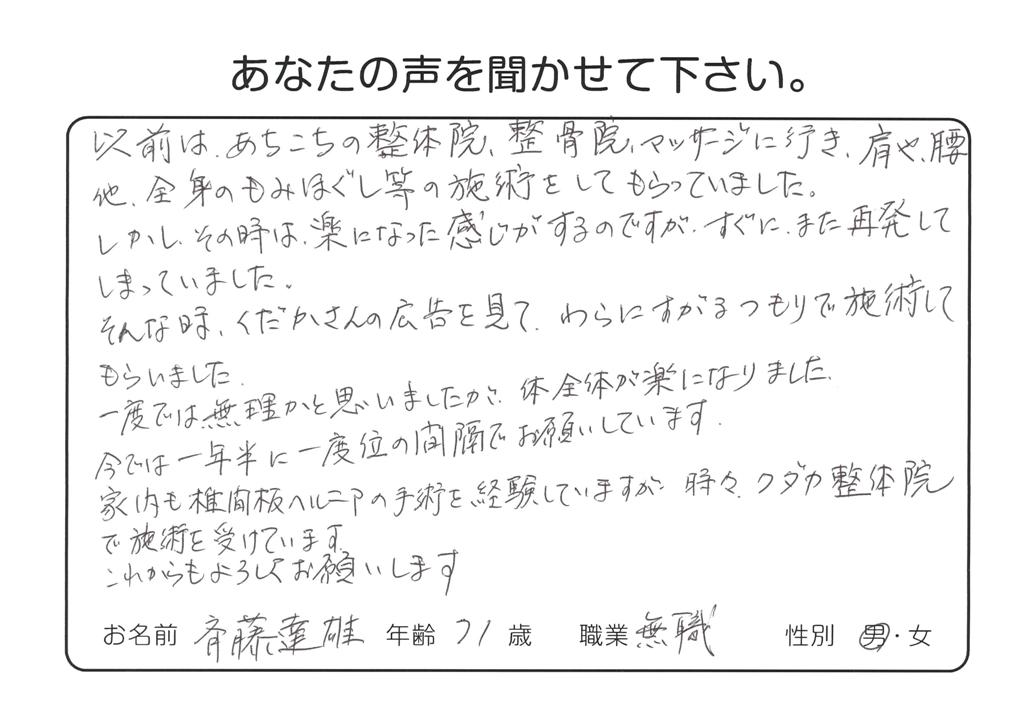 あなたの声を聞かせて下さい。
以前は、あちこちの整体院、整骨院、マッサージに行き、肩や、腰
他、全身のもみほぐし等の施術をしてもらっていました。
しかし、その時は、楽になった感じがするのですが、すぐに、また再発して
しまっていました。
そんな時、くだかさんの広告を見て、わらにすがるつもりで施術して
もらいました。
一度では無理かと思いましたが、体全体が楽になりました。
今では一年半に一度位の間隔でお願いしています。
家内も椎間板ヘルニアの手術を経験していますが 時々、クダカ整体院
で施術を受けています。
これからもよろしくお願いします
お名前 斉藤達雄 年齢 71 歳 職業 無職 性別 男・女